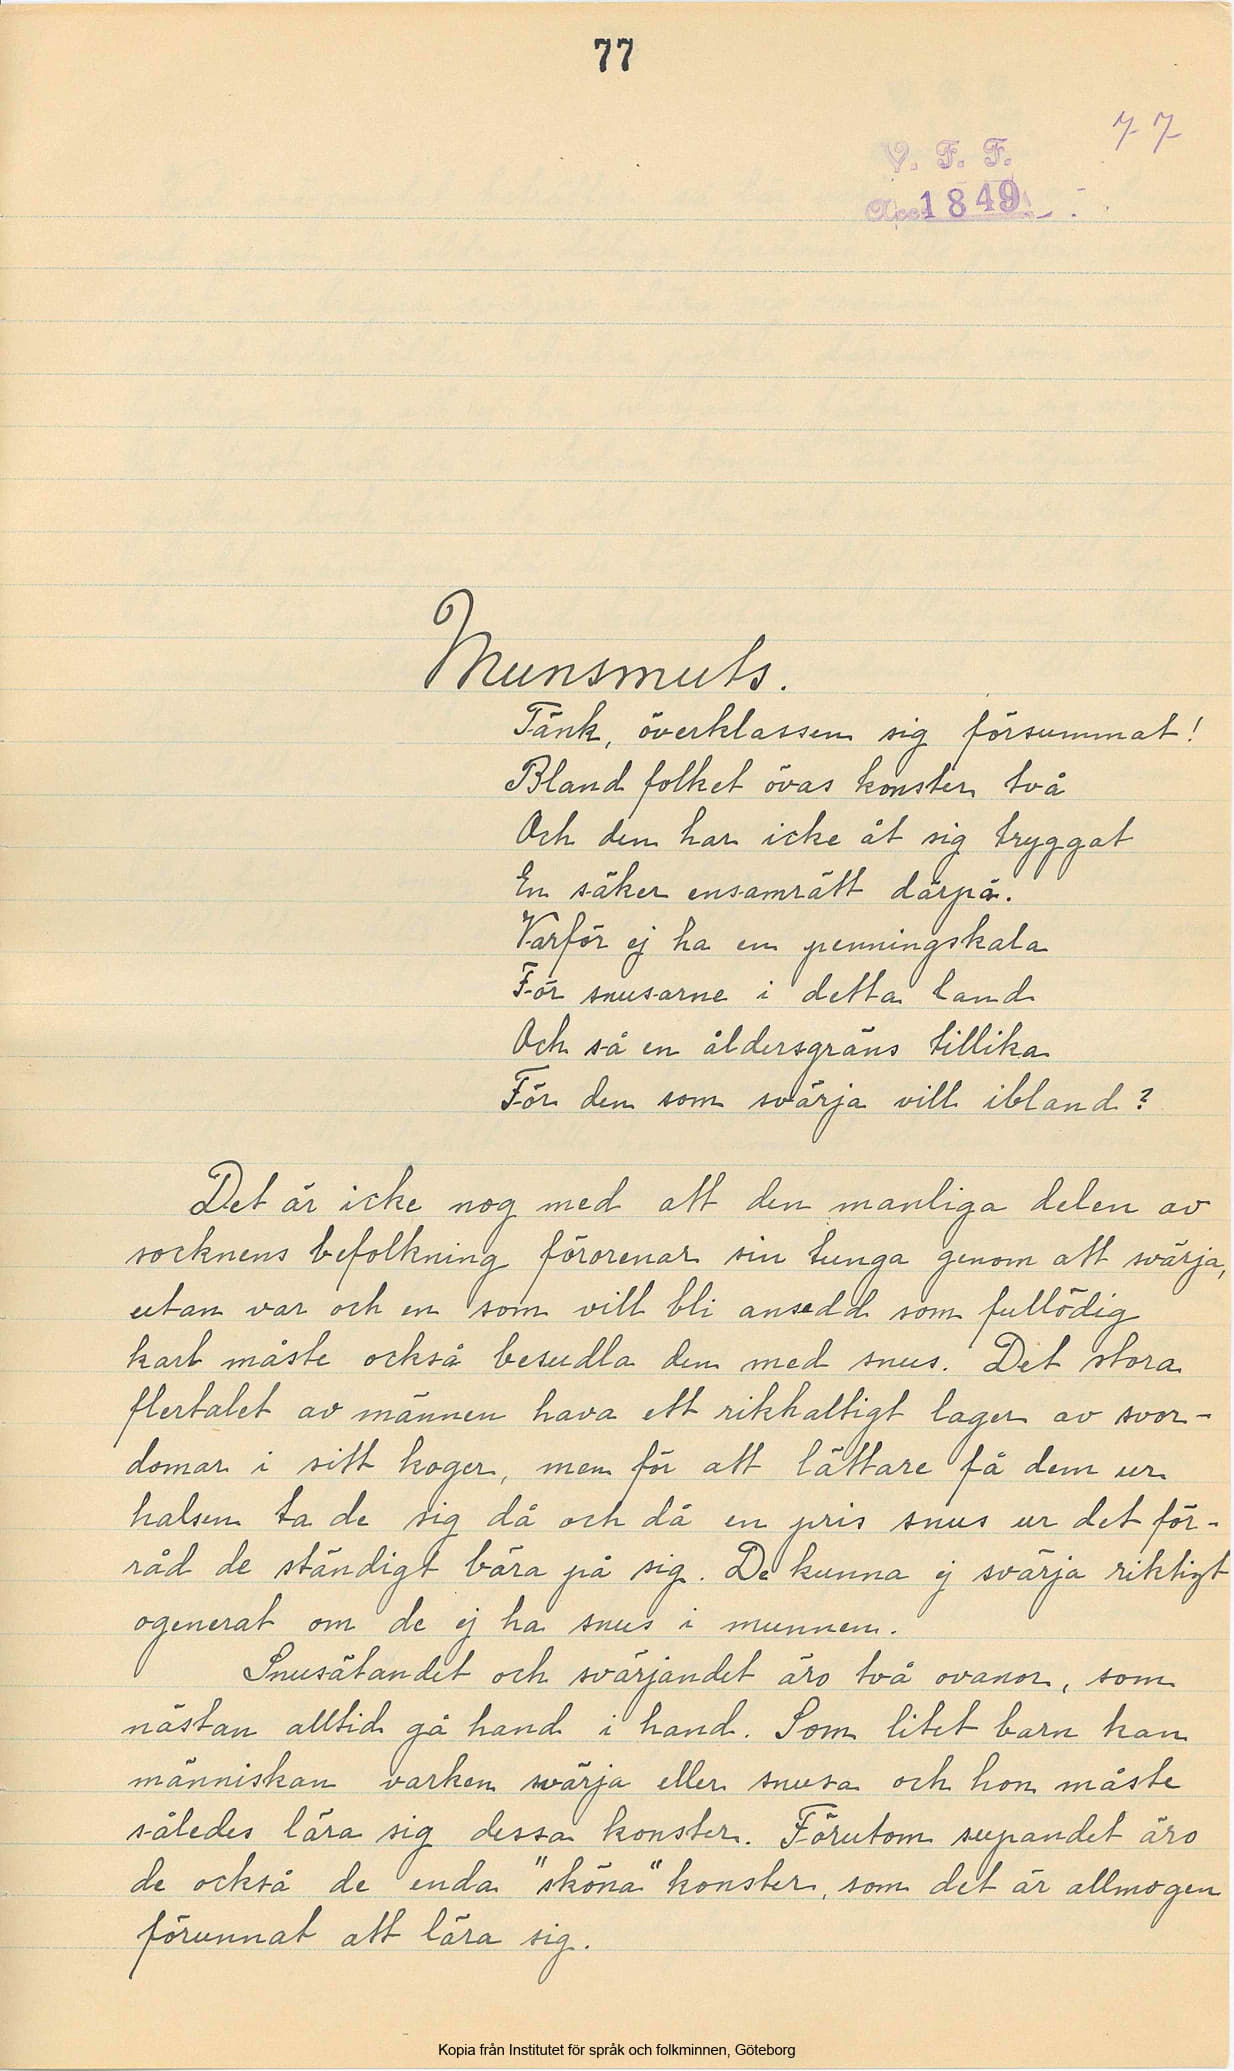 77
77
V. F. F.
Acc. 1849
Munsmuts.
Tänk, överklassen sig försummat!
Bland folket övas konster två
Och den har icke åt sig tryggat
En säker ensamrätt därpå.
Varför ej ha en penningskala
För snusarne i detta land
Och så en åldersgräns tillika
För den som svärja vill ibland?
Det är icke nog med att den manliga delen av
socknens befolkning förorenar sin tunga genom att svärja,
utan var och en som vill bli ansedd som fullödig
karl måste också besudla den med snus. Det stora
flertalet av männen hava ett rikhaltigt lager av svor-
domar i sitt koger, men för att lättare få dem ur
halsen ta de sig då och då en pris snus ur det för-
råd de ständigt bära på sig. De kunna ej svärja riktigt
ogenerat om de ej ha snus i munnen.
Snusätandet och svärjandet äro två ovanor, som
nästan alltid gå hand i hand. Som litet barn kan
människan varken svärja eller snusa och hon måste
således lära sig dessa konster. Förutom supandet äro
de också de enda "sköna" konster, som det är allmogen
förunnat att lära sig.
Kopia från Institutet för språk och folkminnen, Göteborg